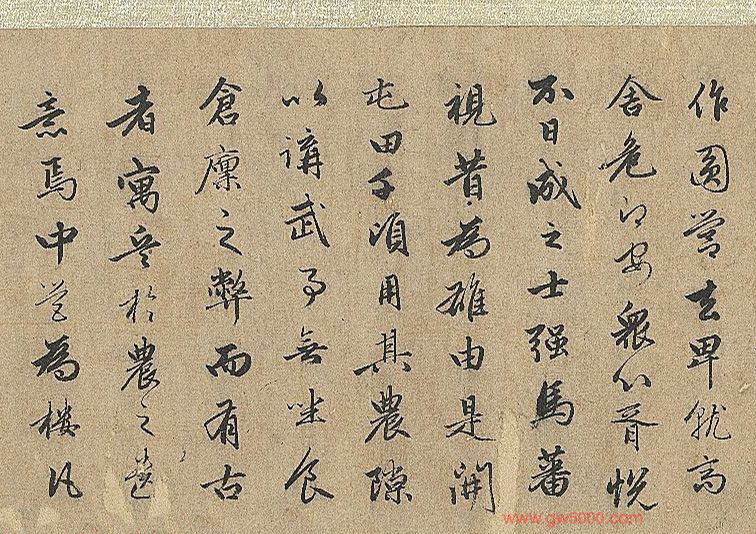 作圓營去卑就高
舍危即安衆心胥悅
不日成之士强馬蕃
視昔為雄由是開
屯田千頃用其農隙
以講武事無坐食
倉廩之弊而有古
者寓兵於農之遺
意焉中營為樓凡
www.gw5000.com